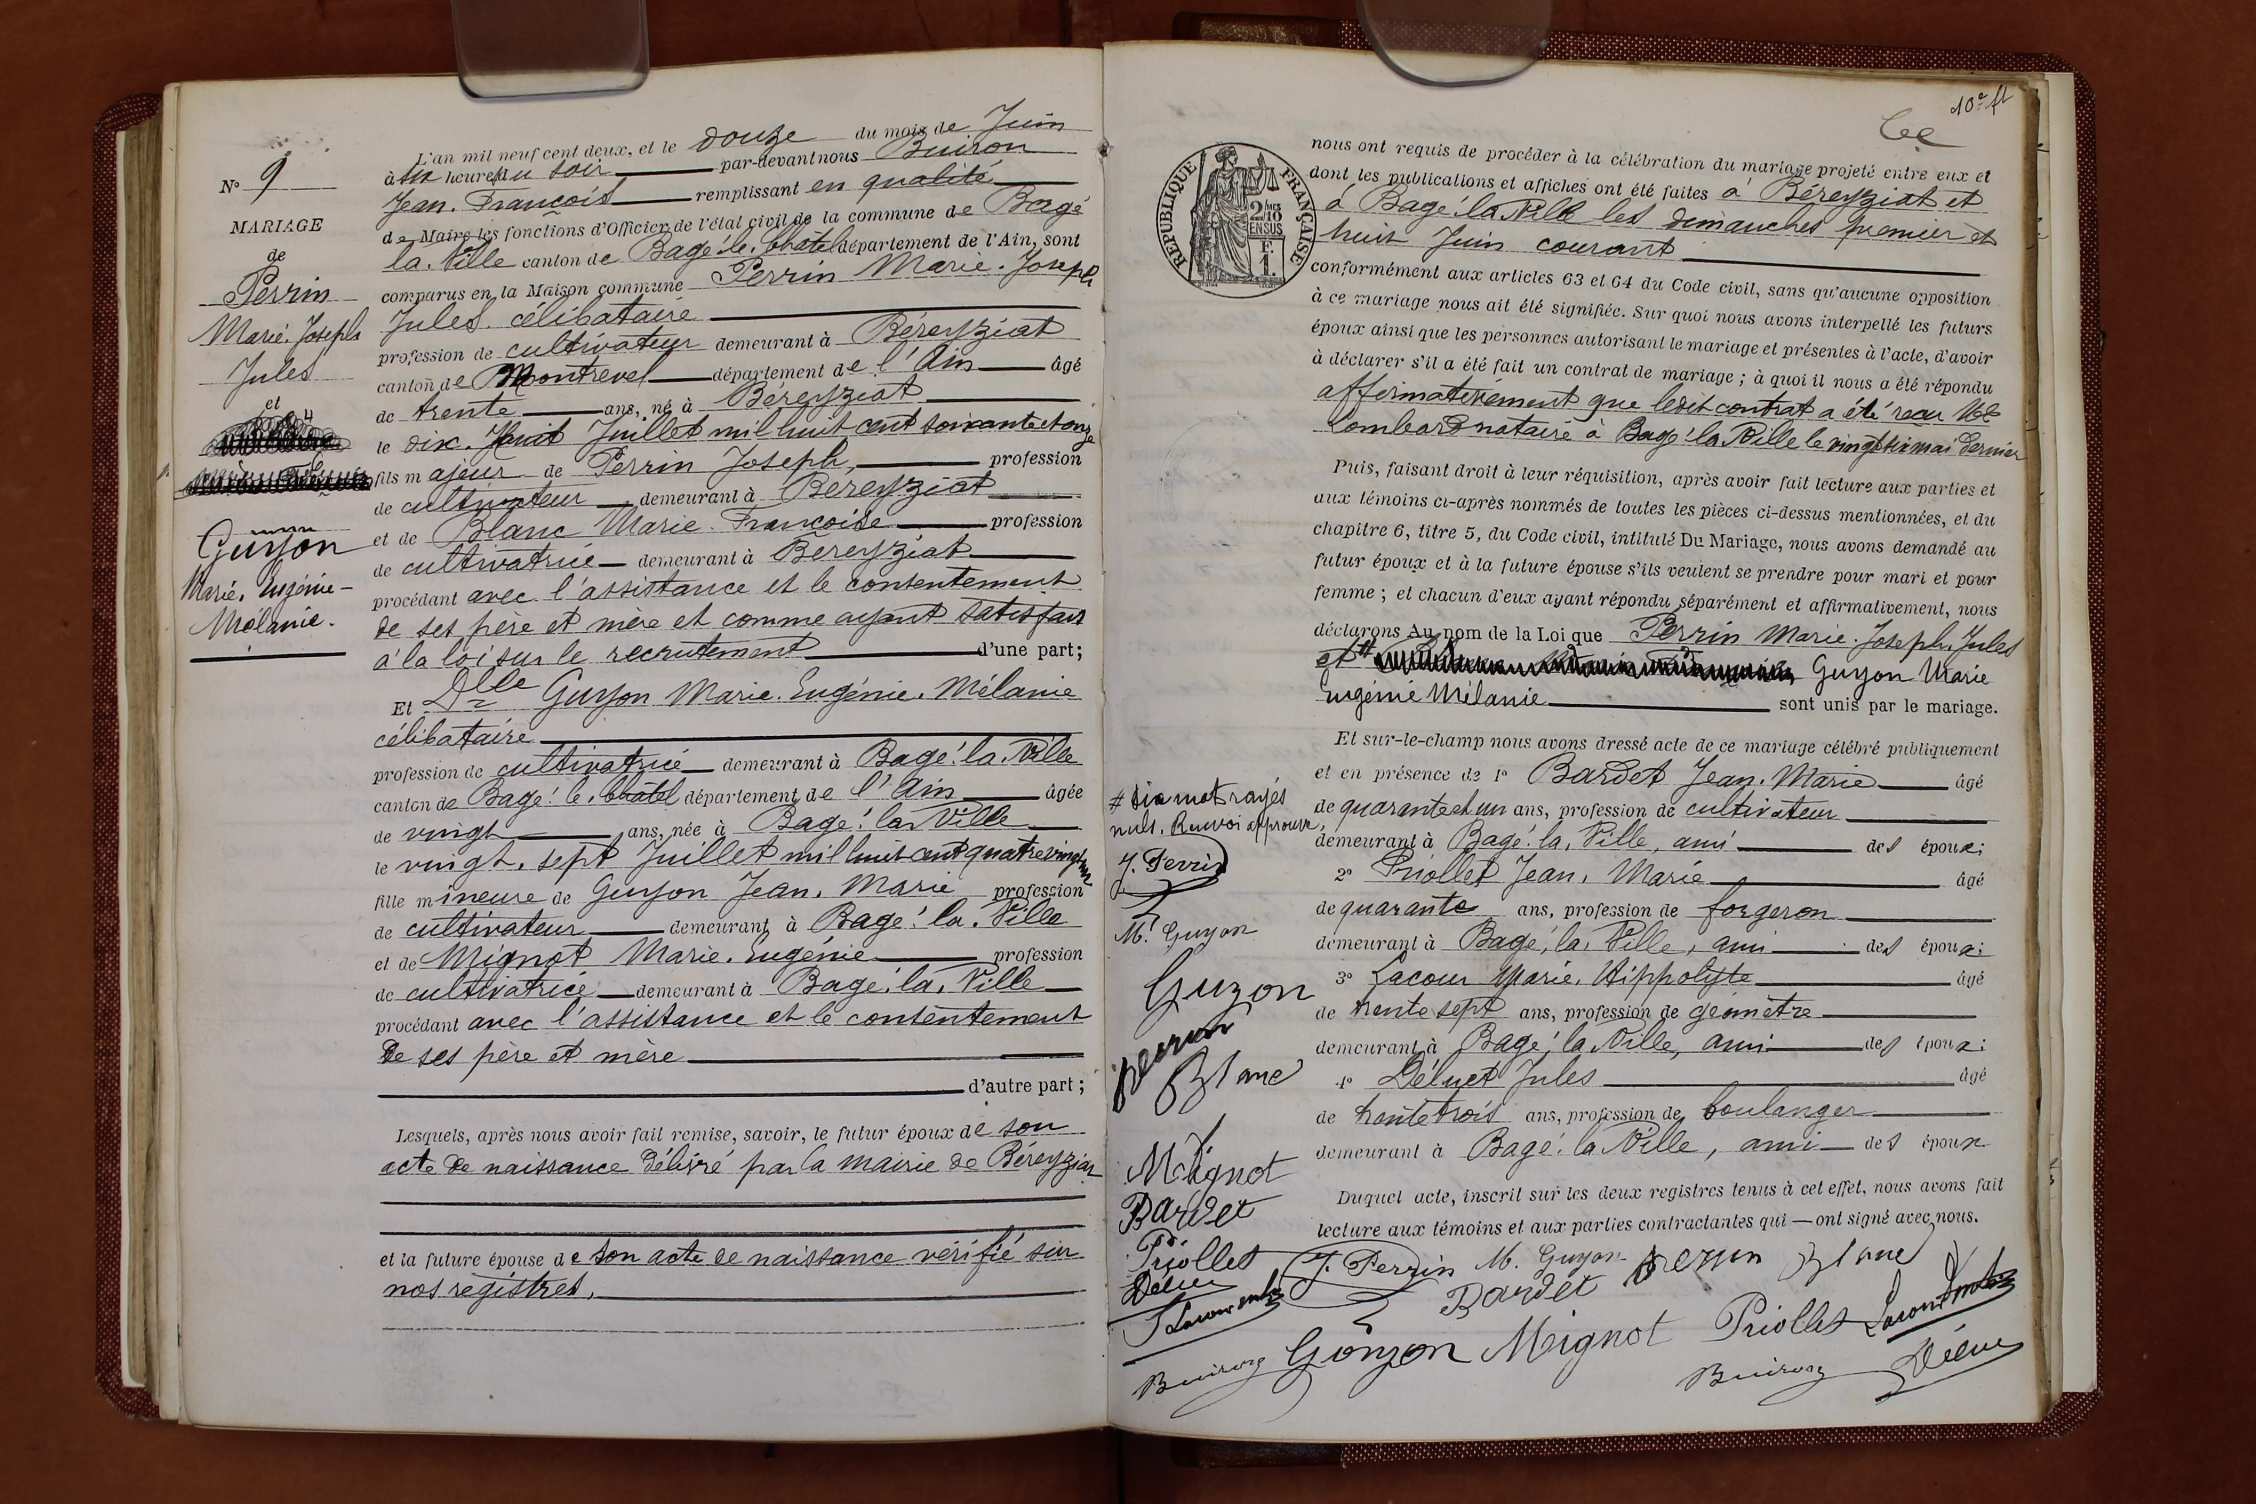 N° 9
MARIAGE
de
Perrin
Marie. Joseph
Jules
et
Guyon
Marie. Eugénie-
Mélanie.
L'an mil neuf cent deux, et le douze du mois de Juin
à six heures du soir par-devant nous Buiron
Jean. François remplissant en qualité
de Maire les fonctions d'Officier de l'état civil de la commune de Bagé
la. Ville canton de Bagé. le. Châtel département de l'Ain, sont
comparus en la Maison commune Perrin Marie. Joseph
Jules. célibataire
profession de cultivateur demeurant à Béreyziat
canton de Montrevel département de l'Ain âgé
de trente ans, né à Béreyziat
le dix. Huit Juillet mil huit cent soixante et onze
fils majeur de Perrin Joseph, profession
de cultivateur demeurant à Béreyziat
et de Blanc Marie. Françoise profession
de cultivatrice demeurant à Béreyziat
procédant avec l'assistance et le consentement
de ses père et mère et comme ayant satisfait
à la loi sur le recrutement d'une part;
Et Dlle Guyon Marie. Eugénie. Mélanie
célibataire
profession de cultivatrice demeurant à Bagé. la. Ville
canton de Bagé. le. Châtel département de l'Ain âgée
de vingt ans, née à Bagé. la Ville
le vingt. sept Juillet mil huit cent quatre vingt un
fille mineure de Guyon Jean. Marie profession
de cultivateur demeurant à Bagé. la. Ville
et de Mignot Marie. Eugénie profession
de cultivatrice demeurant à Bagé. la. Ville
procédant avec l'assistance et le consentement
de ses père et mère
d'autre part;
Lesquels, après nous avoir fait remise, savoir, le futur époux de son
acte de naissance délivré par la mairie de Béreyziat
et la future épouse de son acte de naissance vérifié sur
nos registres.
10e ft
RÉPUBLIQUE FRANÇAISE
2/10 EN SUS
F. 1.
nous ont requis de procéder à la célébration du mariage projeté entre eux et
dont les publications et affiches ont été faites à Béreyziat et
à Bagé. la Ville les dimanches premier et
huit Juin courant
conformément aux articles 63 et 64 du Code civil, sans qu'aucune opposition
à ce mariage nous ait été signifiée. Sur quoi nous avons interpellé les futurs
époux ainsi que les personnes autorisant le mariage et présentes à l'acte, d'avoir
à déclarer s'il a été fait un contrat de mariage ; à quoi il nous a été répondu
affirmativement que ledit contrat a été reçu Me
Lombard notaire à Bagé. la Ville le vingt six mai dernier
Puis, faisant droit à leur réquisition, après avoir fait lecture aux parties et
aux témoins ci-après nommés de toutes les pièces ci-dessus mentionnées, et du
chapitre 6, titre 5, du Code civil, intitulé Du Mariage, nous avons demandé au
futur époux et à la future épouse s'ils veulent se prendre pour mari et pour
femme ; et chacun d'eux ayant répondu séparément et affirmativement, nous
déclarons Au nom de la Loi que Perrin Marie. Joseph. Jules
et # Guyon Marie
Eugénie Mélanie sont unis par le mariage.
Et sur-le-champ nous avons dressé acte de ce mariage célébré publiquement
et en présence de 1° Bardet Jean. Marie âgé
de quarante et un ans, profession de cultivateur
demeurant à Bagé. la. Ville, ami des époux;
2° Priollet Jean. Marie âgé
de quarante ans, profession de forgeron
demeurant à Bagé. la. Ville, ami des époux;
3° Lacour Marie. Hippolyte âgé
de trente sept ans, profession de géomètre
demeurant à Bagé. la Ville, ami des époux;
4° Déluet Jules âgé
de trente trois ans, profession de boulanger
demeurant à Bagé. la Ville, ami des époux
Duquel acte, inscrit sur les deux registres tenus à cet effet, nous avons fait
lecture aux témoins et aux parties contractantes qui — ont signé avec nous.
J. Perrin M. Guyon perrin Blanc
Bardet
Gonyon Meignot Priollet Lacour
Buiron
# dix mots rayés
nuls. Renvoi approuvé.
J. Perrin
M. Guyon
Guyon
perrin
Blanc
Meignot
Bardet
Priollet
Lacour
Buiron